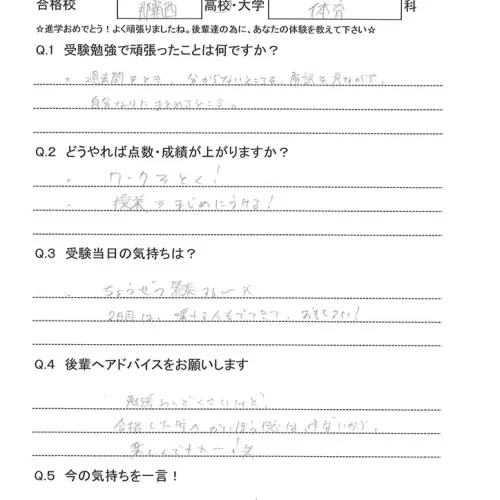 合格校 那覇西 高校・大学 体育 科
☆進学おめでとう！よく頑張りましたね。後輩達の為に、あなたの体験を教えて下さい☆
Q.1 受験勉強で頑張ったことは何ですか？
。過去問をとき、分からないところを、解説を見ながら、
自分なりにまとめてところ。
Q.2 どうやれば点数・成績が上がりますか？
。ワークをとく！
授業をまじめにうける！
Q.3 受験当日の気持ちは？
ちょうぜつ緊張
2日目は、
Q.4 後輩へアドバイスをお願いします
勉強
合格した時の
楽しんでれー！
Q.5 今の気持ちを一言！